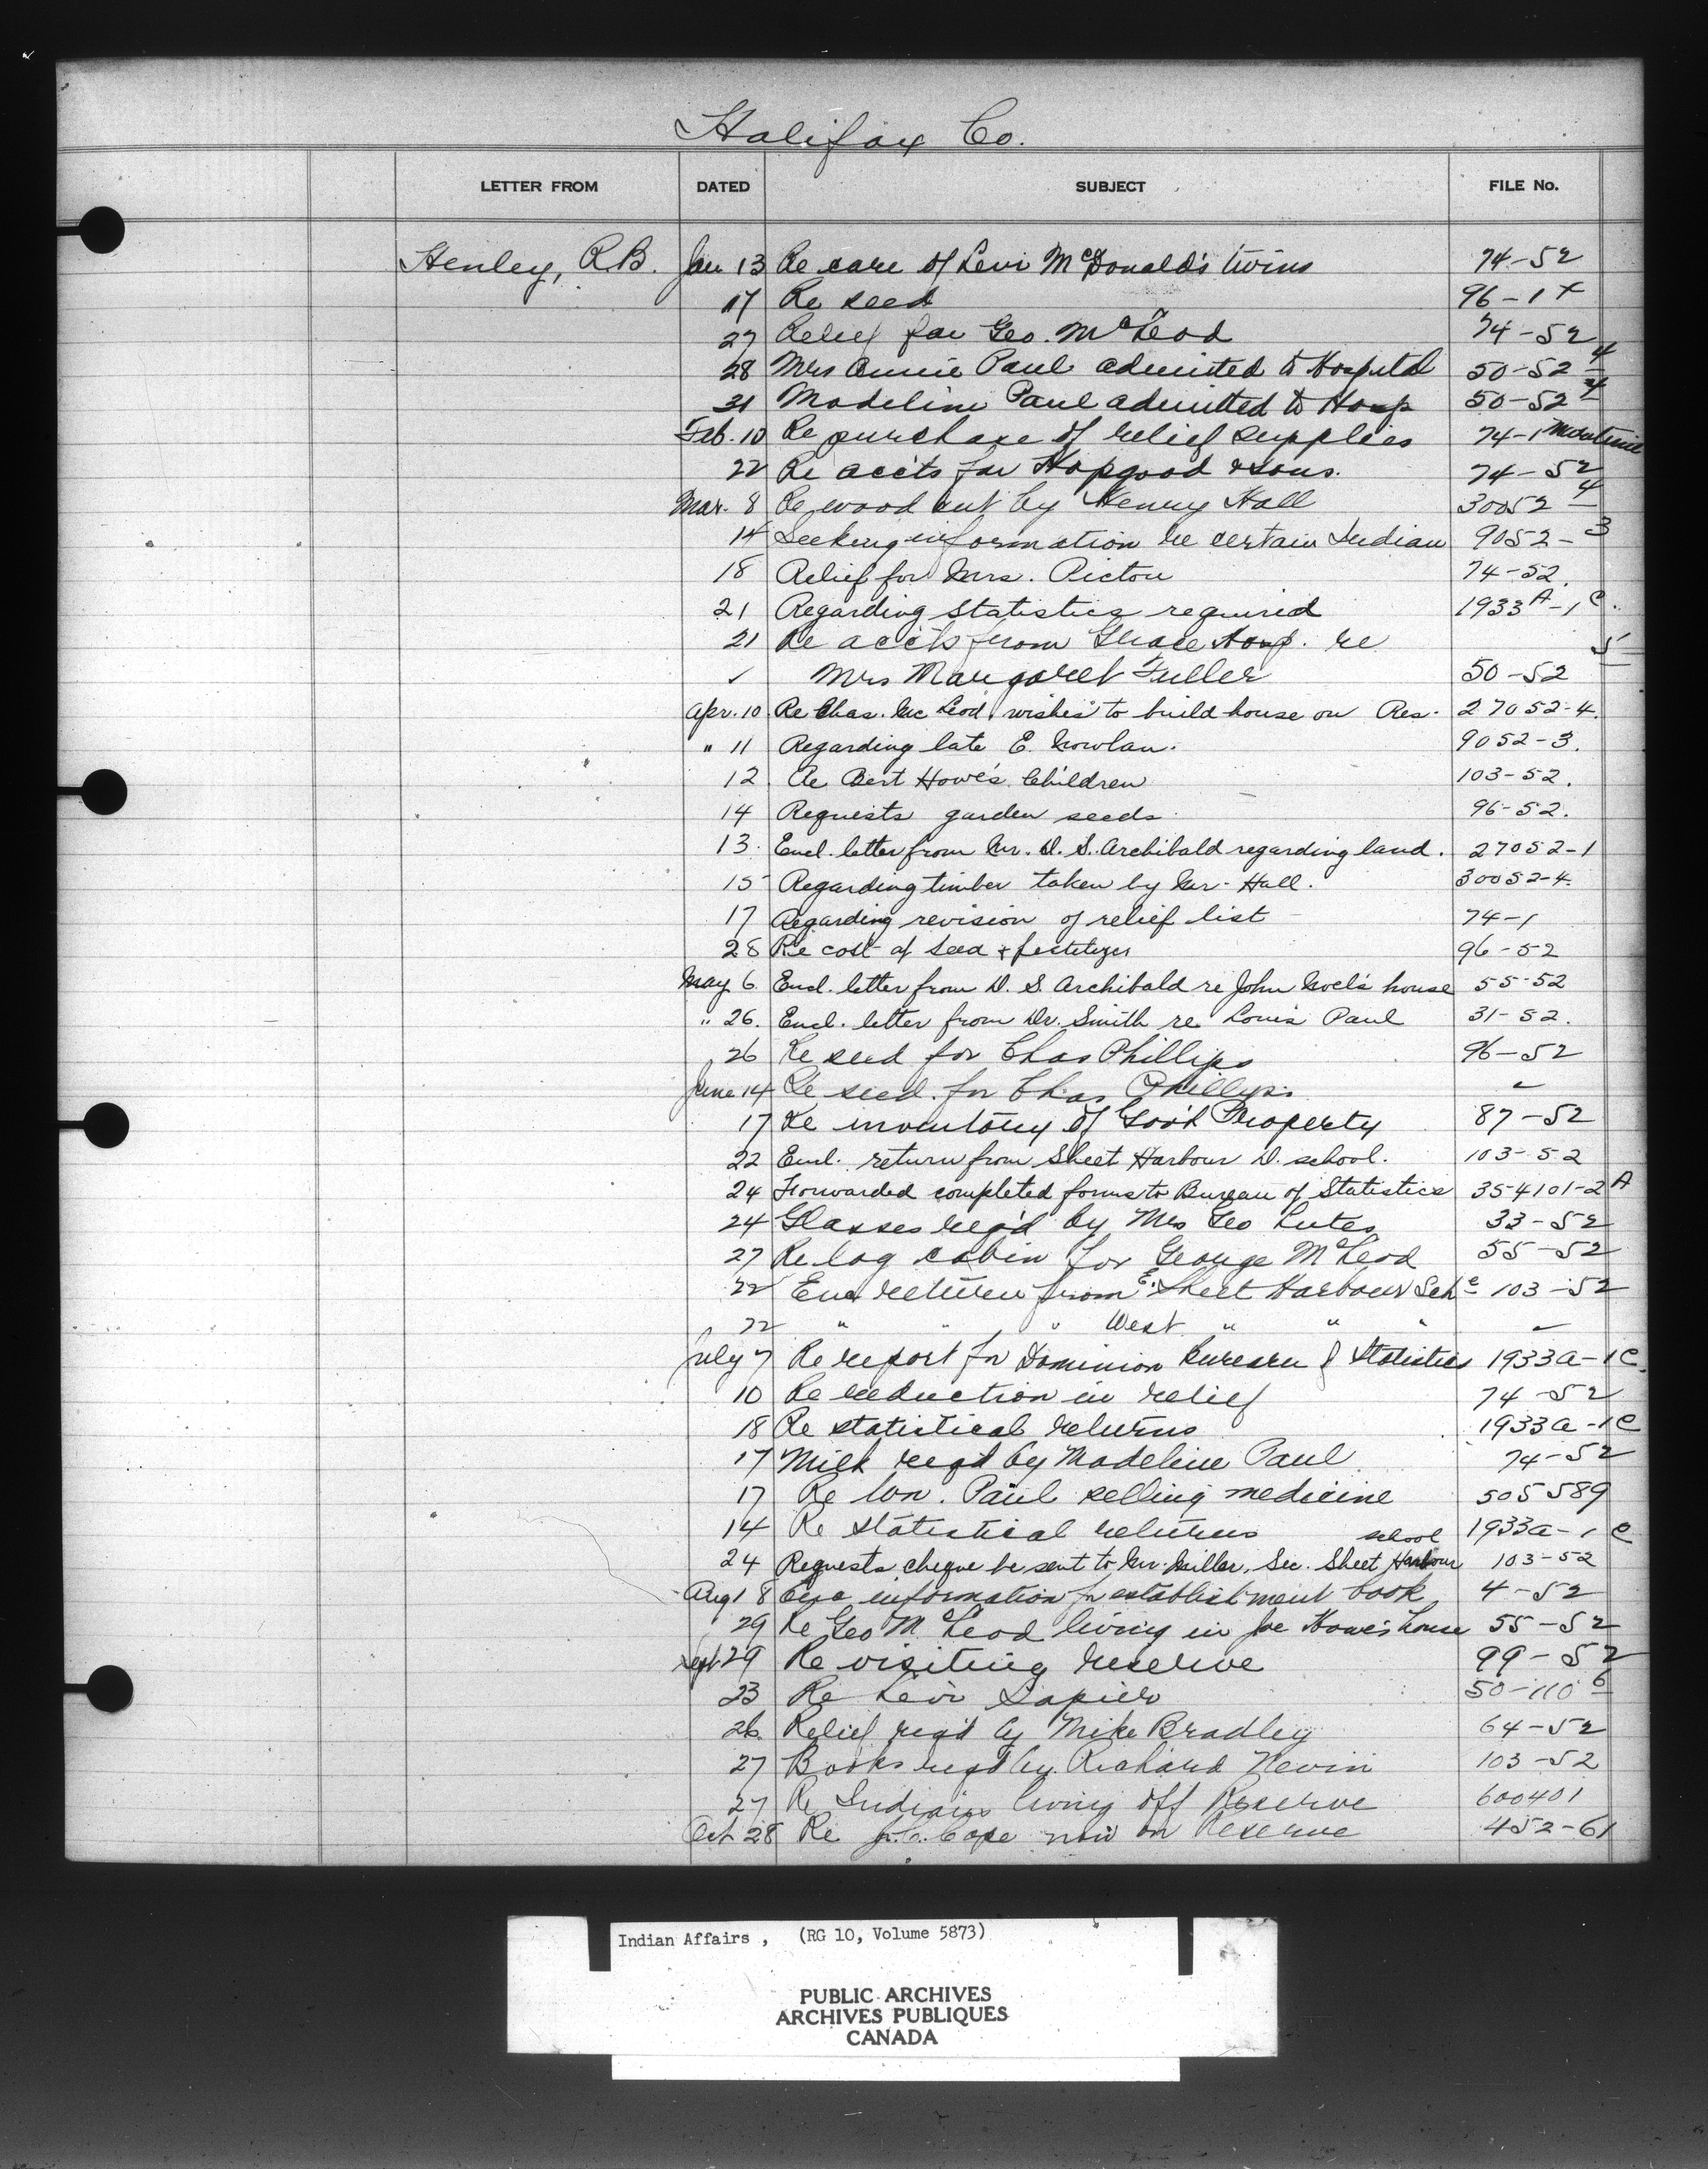 Halifax Co.
LETTER FROM DATED SUBJECT FILE No.
Henley, R.B. Jan 13 Re care of Levi McDonald's twins 74-52
17 Re seed 96-1 x
27 Relief for Geo. McLeod 74-52
28 Mrs Annie Paul admitted to Hospital 50-52-4
31 Madeline Paul admitted to Hosp 50-52-4
Feb. 10 Re purchase of relief supplies 74-1 Maritime
22 Re acc'ts for Hopgood & sons. 74-52
Mar. 8 Re wood cut by Henry Hall 30052-4
14 Seeking information re certain Indian 9052-3
18 Relief for Mrs. Pictou 74-52.
21 Regarding statistics required 1933A-1 C.
21 Re acc'ts from Grace Hosp. re
✓ Mrs Margaret Fuller 50-52 5
Apr. 10 Re Chas. McLeod, wishes to build house on Res. 27052-4.
" 11 Regarding late E. Nowlan. 9052-3.
12 Re Bert Howe's Children 103-52.
14 Requests garden seeds 96-52.
13. Encl. letter from Mr. D. S. Archibald regarding land. 27052-1
15 Regarding timber taken by Mr. Hall. 30052-4.
17 Regarding revision of relief list 74-1
28 Re cost of seed & fertilizer 96-52
May 6 Encl. letter from D. S. Archibald re John Noel's house 55-52
" 26. Encl. letter from Dr. Smith re Louis Paul 31-52.
26 Re seed for Chas Phillips 96-52
June 14 Re seed for Chas Phillips ✓
17 Re inventory of Gov't Property 87-52
22 Encl. return from Sheet Harbour D. school. 103-52
24 Forwarded completed forms to Bureau of Statistics 354101-2A
24 Glasses req'd by Mrs Geo Lutes 33-52
27 Re log cabin for George McLeod 55-52
22 Enc return from E. Sheet Harbour Sch 103-52
22 " " " West " " " ✓
July 7 Re report for Dominion Bureau of Statistics 1933a-1 C.
10 Re reduction in relief 74-52
18 Re statistical returns 1933a-1 C
17 Milk req'd by Madeline Paul 74-52
17 Re Wm. Paul selling medicine 505589
14 Re statistical returns 1933a-1 C
24 Requests cheque be sent to Mr. Miller, Sec. Sheet Harbour school 103-52
Aug 18 information for establishment book 4-52
29 Re Geo McLeod living in Joe Howe's house 55-52
Sept 29 Re visiting reserve 99-52
23 Re Levi 50-110-6
26 Relief req'd by Mike Bradley 64-52
27 Books req'd by Richard Nevin 103-52
27 Re Indians living off Reserve 600401
Oct 28 Re J.C. Cope now on Reserve 452-61
Indian Affairs , (RG 10, Volume 5873)
PUBLIC ARCHIVES
ARCHIVES PUBLIQUES
CANADA